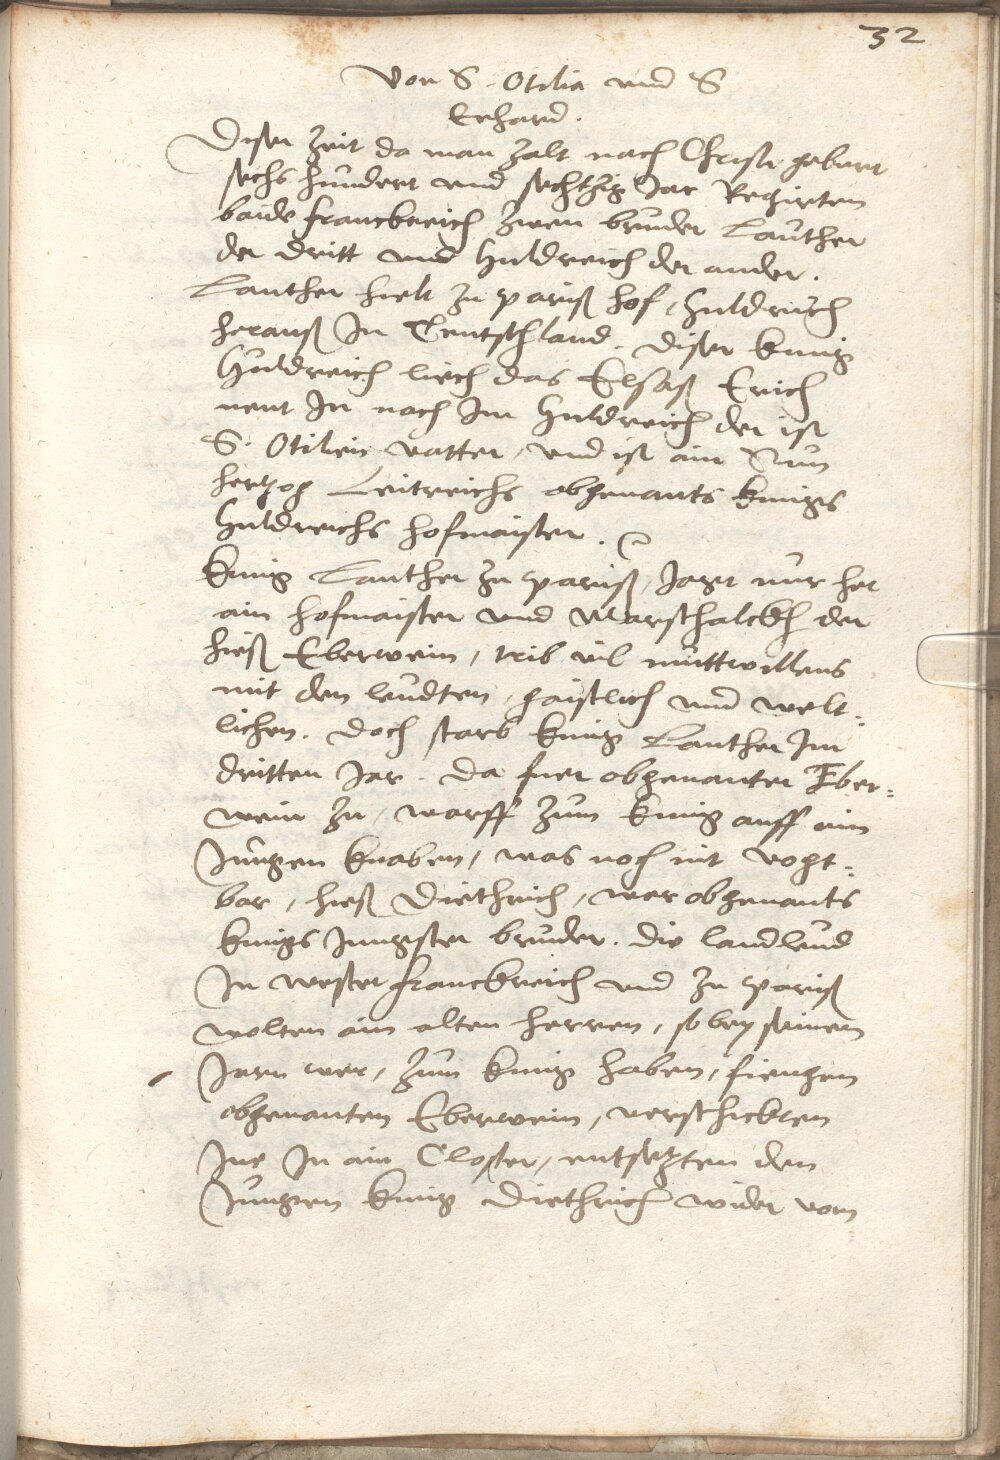 32
Von S. Otilia und S
Erhard.
Diser Zeit da man zalt nach Christi geburt
sechs hundert und sechtzig Jar Regirten
baide franckreich zwen bruder Lauther
der dritt und Huldreich der ander.
Lauther hielt zu pariß hof, Huldrich
herauß In Teutschland. Diser kunig
Huldreich liech das Elsaß Erich
nent In nach Im Huldreich der ist
S. Otilien vatter, und ist ain Sun
hertzog Leitreichs obgenants kunigs
Huldreichs hofmaister.
kunig Lauther zu pariß, Jagt nur het
ain hofmaister und Marschalckh der
hieß Eberwein, trib vil muttwillens
mit den leudten, gaistlich und welt-
lichen. Doch starb kunig Lauther Im
dritten Jar. Da fuer obgenanter Eber=
wein zu, warff zum kunig auff ain
Jungen knaben, was noch nit vogt=
bar, hieß Diethrich, wer obgenants
kunigs Jungster bruder. Die landleud
In wester franckreich und zu pariß
wolten ain alten herren, so bey seinen
Jarn wer, zum kunig haben, fiengen
obgenanten Eberwein, verschickten
Ine In ain Closter, entsetzten den
Jungen kunig Diethrich wider vom